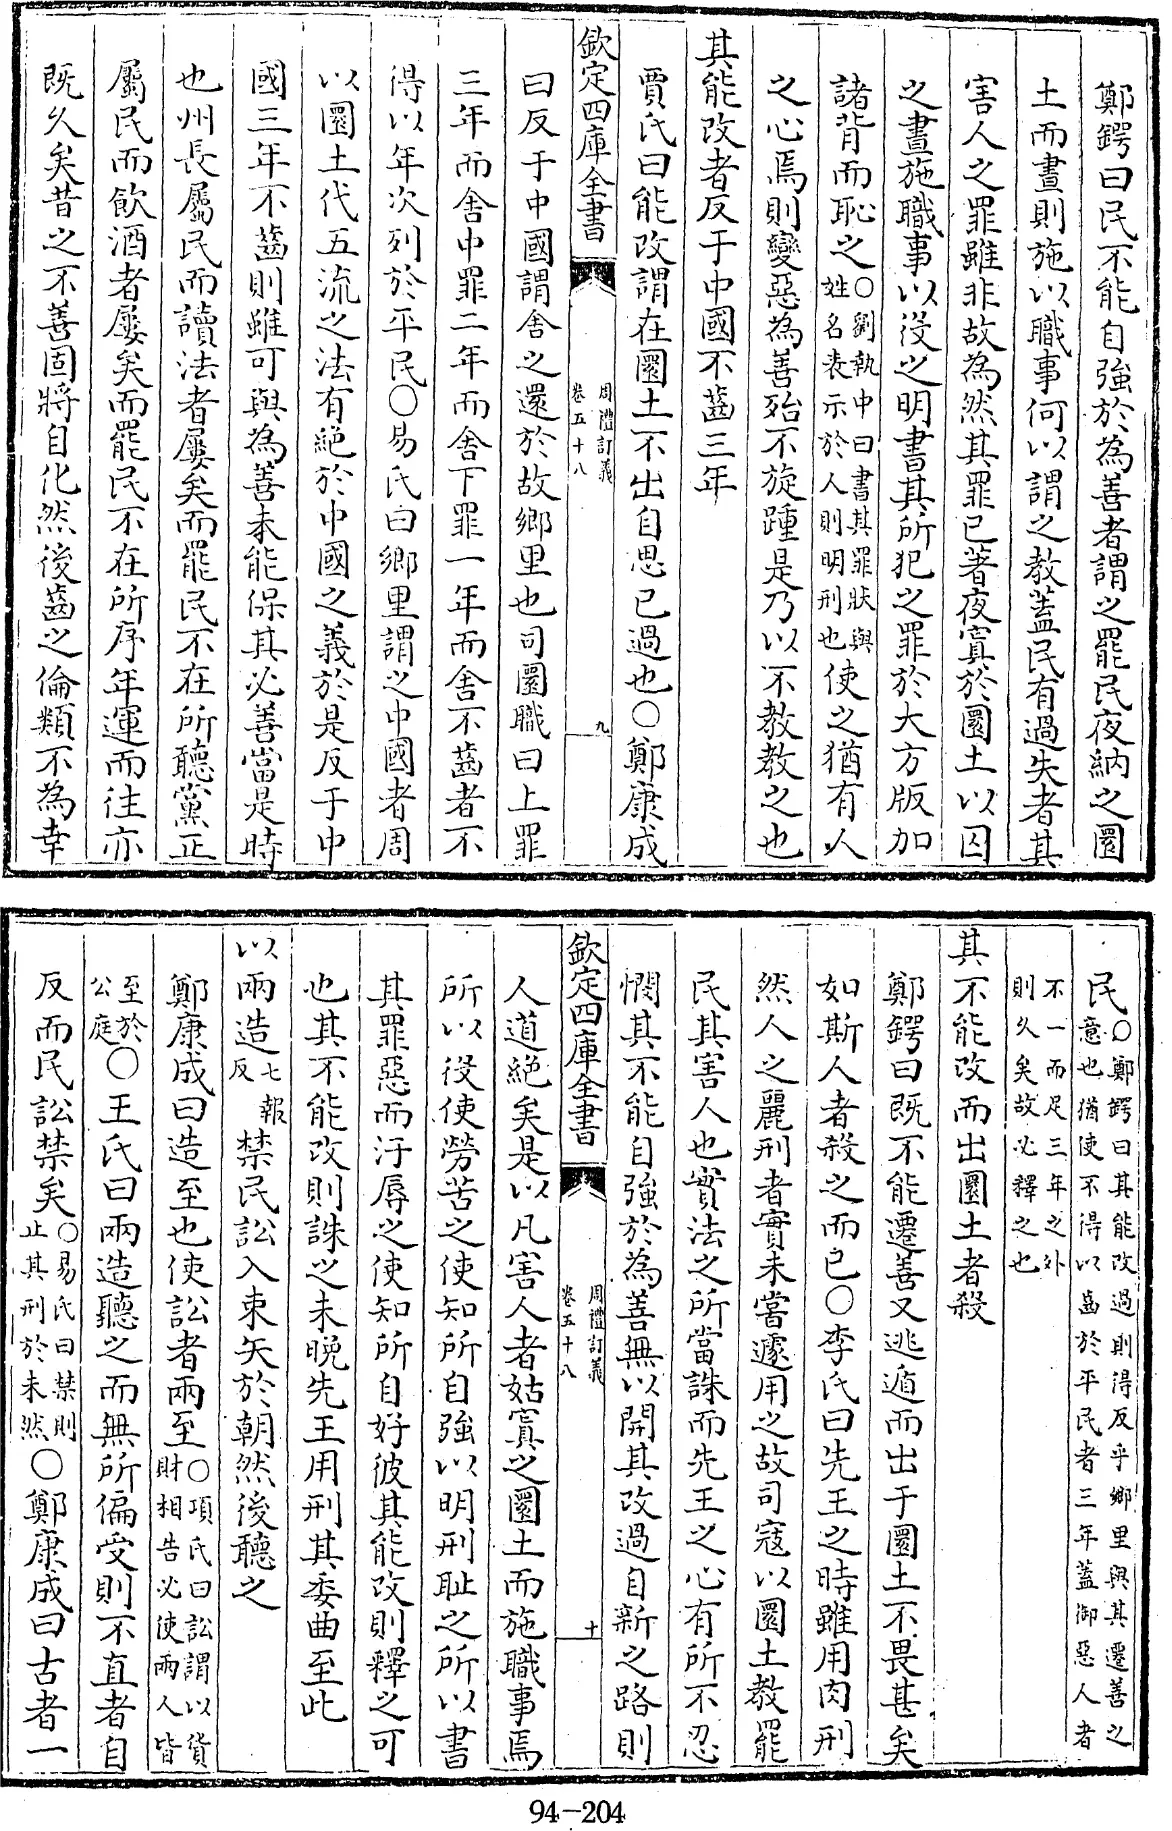 鄭鍔曰民不能自強於為善者謂之罷民夜納之圜
土而晝則施以職事何以謂之教蓋民有過失者其
害人之罪雖非故為然其罪已著夜寘於圜土以囚
之晝施職事以役之明書其所犯之罪於大方版加
諸背而恥之○劉執中曰書其罪狀與姓名表示於人則明刑也使之猶有人
之心焉則變惡為善殆不旋踵是乃以不教教之也
其能改者反于中國不齒三年
賈氏曰能改謂在圜土不出自思已過也○鄭康成
欽定四庫全書 周禮訂義 卷五十八 九
曰反于中國謂舍之還於故鄉里也司圜職曰上罪
三年而舍中罪二年而舍下罪一年而舍不齒者不
得以年次列於平民○易氏曰鄉里謂之中國者周
以圜土代五流之法有絕於中國之義於是反于中
國三年不齒則雖可與為善未能保其必善當是時
也州長屬民而讀法者屢矣而罷民不在所聽黨正
屬民而飲酒者屢矣而罷民不在所序年運而往亦
既久矣昔之不善固將自化然後齒之倫類不為幸
民○鄭鍔曰其能改過則得反乎鄉里與其遷善之意也猶使不得以齒於平民者三年蓋御惡人者
不一而足三年之外則久矣故必釋之也
其不能改而出圜土者殺
鄭鍔曰既不能遷善又逃遁而出于圜土不畏甚矣
如斯人者殺之而已○李氏曰先王之時雖用肉刑
然人之麗刑者實未嘗遽用之故司寇以圜土教罷
民其害人也實法之所當誅而先王之心有所不忍
憫其不能自強於為善無以開其改過自新之路則
欽定四庫全書 周禮訂義 卷五十八 十
人道絕矣是以凡害人者姑寘之圜土而施職事焉
所以役使勞苦之使知所自強以明刑耻之所以書
其罪惡而汙辱之使知所自好彼其能改則釋之可
也其不能改則誅之未晚先王用刑其委曲至此
以兩造七報反禁民訟入束矢於朝然後聽之
鄭康成曰造至也使訟者兩至○項氏曰訟謂以貨財相告必使兩人皆
至於公庭○王氏曰兩造聽之而無所偏受則不直者自
反而民訟禁矣○易氏曰禁則止其刑於未然○鄭康成曰古者一
94-204